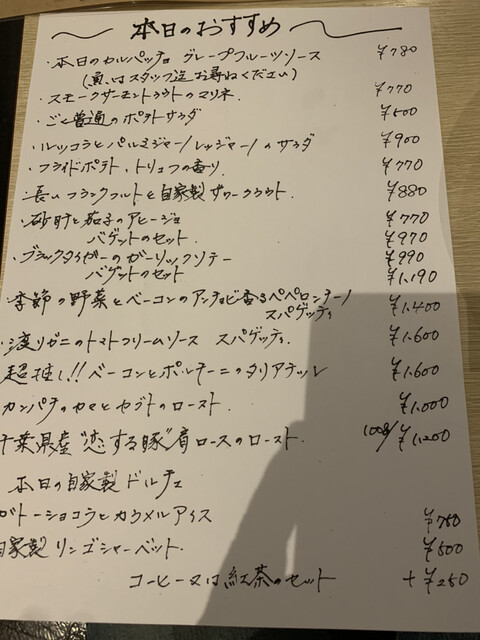 本日のおすすめ
・本日のカルパッチョ グレープフルーツソース ¥780
(魚はスタッフ迄お尋ねください)
・スモークサーモントラウトのマリネ. ¥770
・ごく普通のポテトサラダ ¥500
・ルッコラとパルミジャーノレッジャーノのサラダ ¥900
・フライドポテト、トリュフの香り. ¥770
・長いフランクフルトと自家製ザワークラウト. ¥880
・砂肝と茄子のアヒージョ ¥770
バゲットのセット. ¥970
・ブラックタイガーのガーリックソテー ¥990
バゲットのセット ¥1,190
・季節の野菜とベーコンのアンチョビ香るペペロンチーノ
スパゲッティ ¥1,400
・渡りガニのトマトクリームソース スパゲッティ ¥1,600
超推し!! ベーコンとポルチーニのタリアテッレ ¥1,600
カンパチのカマとヤゲトのロースト. ¥1,000
千葉県産"恋する豚"肩ロースのロースト. 100g/¥1,200
本日の自家製ドルチェ
ガトーショコラとカラメルアイス ¥750
自家製リンゴシャーベット. ¥500
コーヒー又は紅茶のセット +¥250